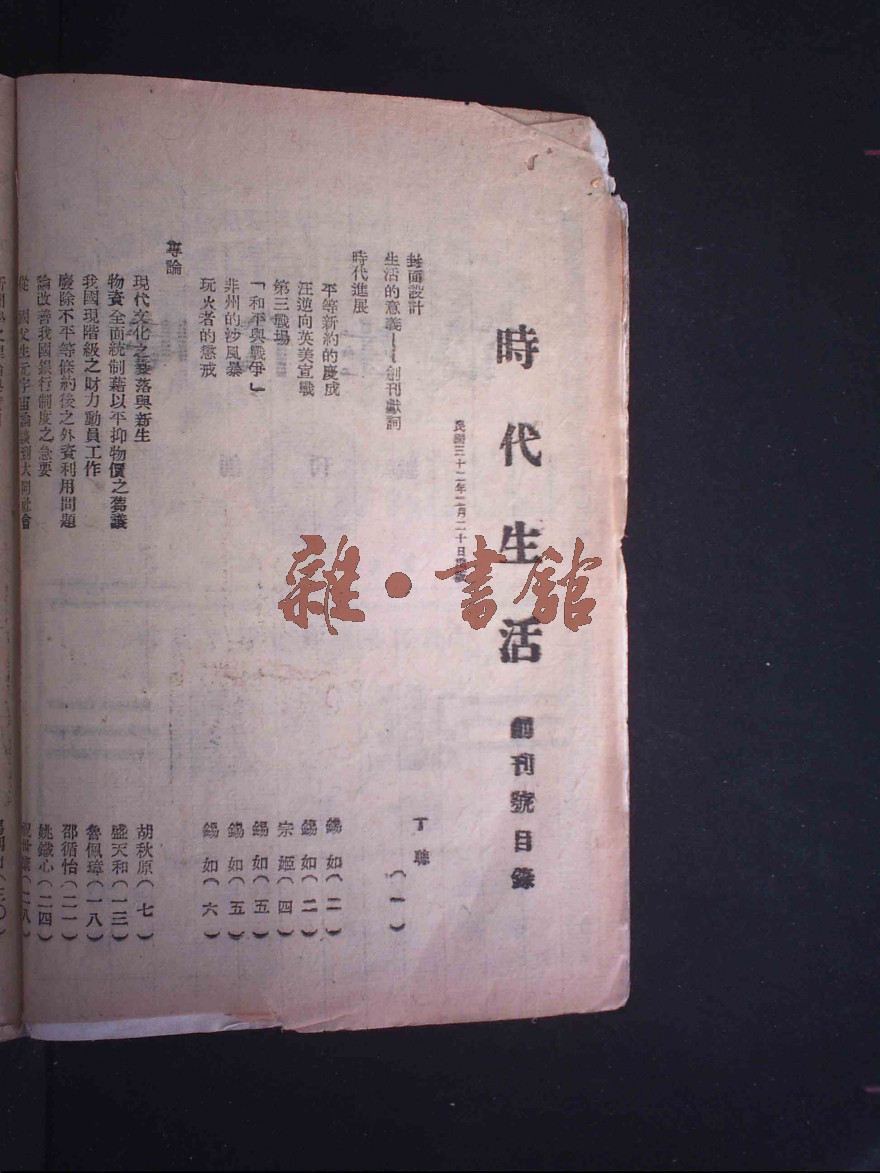 時代生活 創刊號目錄
民國三十二年二月二十日出版
封面設計 丁聰
生活的意義——創刊獻詞 (一)
時代進展
平等新約的慶成 錫如(二)
汪逆向英美宣戰 錫如(二)
第三戰場 宗姬(四)
「和平與戰爭」 錫如(五)
非州的沙風暴 錫如(五)
玩火者的懲戒 錫如(六)
專論
現代文化之蓡落與新生 胡秋原(七)
物資全面統制藉以平抑物價之芻議 盛天和(一三)
我國現階級之財力動員工作 魯佩璋(一八)
廢除不平等條約後之外資利用問題 邵循怡(二一)
論改善我國銀行制度之急要 姚鐵心(二四)
從 國父生元宇宙論談到大同社會 (二八)
雜·書館